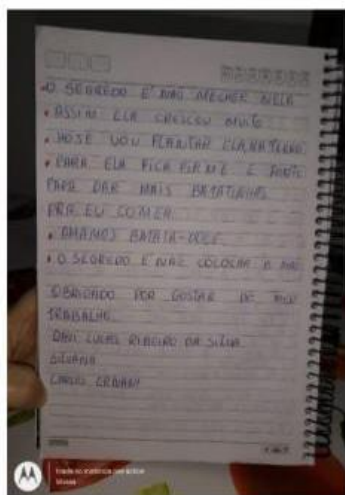 • O SEGREDO E' NÃO MECHER NELA
• ASSIM ELA CRESCEU MUITO
• HOJE VOU PLANTAR ELA NA TERRA
• PARA ELA FICA FIRME E FORTE
PARA DAR MAIS BATATINHAS
PRA EU COMER
• AMAMOS BATATA-DOCE
• O SEGREDO E NÃO COLOCAR A MÃO
OBRIGADO POR GOSTAR DO MEU
TRABALHO
DAVI LUCAS RIBEIRO DA SILVA
SILVANA
CARLOS